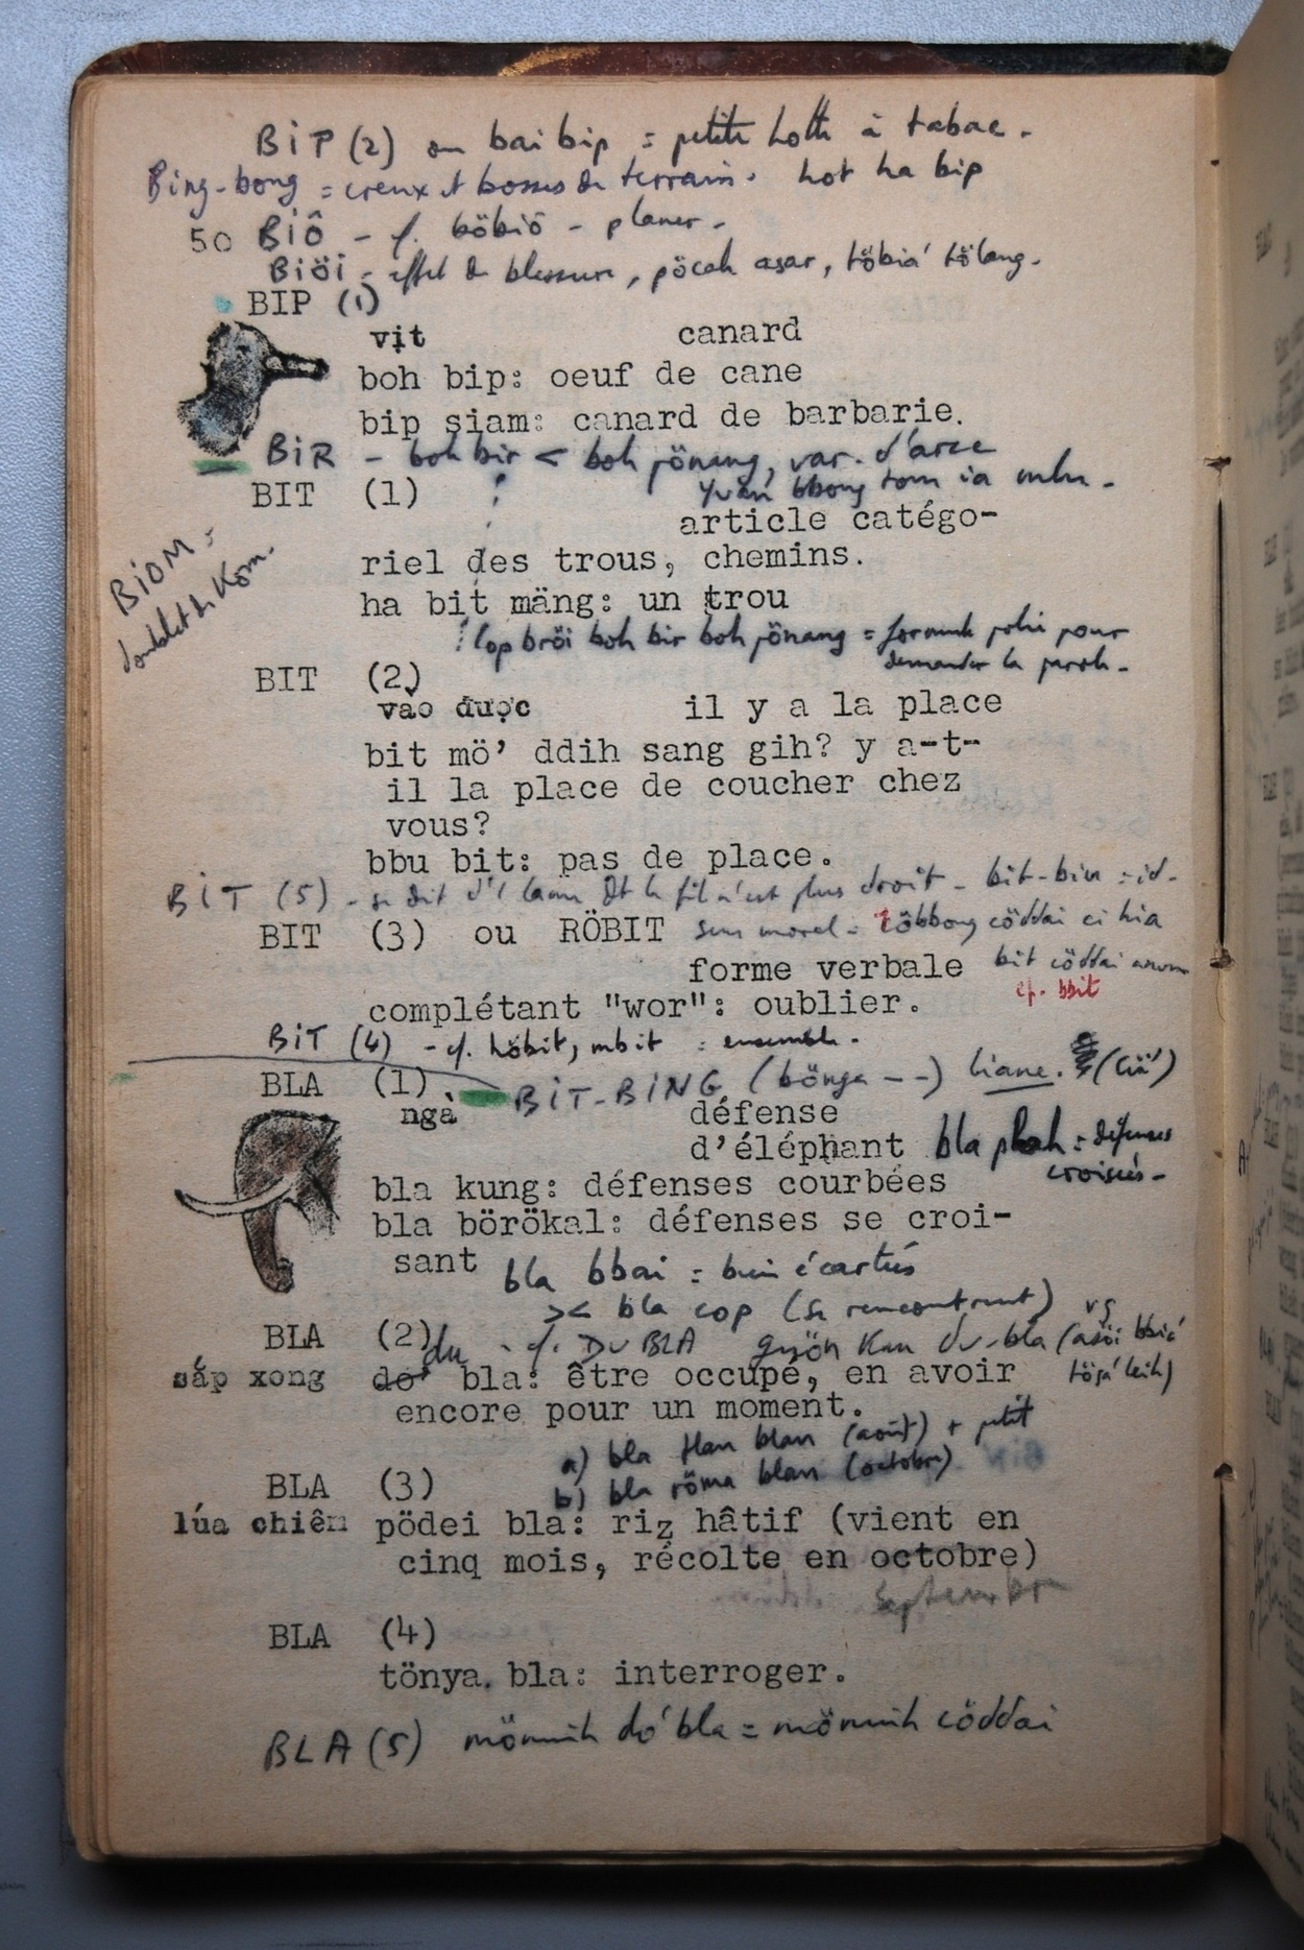 BIP (2) ou bai bip = petite hotte à tabac.
Bing-bong = creux et bosses de terrain. hot ha bip
50 BIÔ - cf. böbiô - planer.
BIÖI - effet de blessure, pöcah asar, töbia' tölang.
BIP (1)
vịt canard
boh bip: oeuf de cane
bip siam: canard de barbarie.
BIR - boh bir < boh pönang, var. d'arec
BIT (1) Yuan bbong tom ia mlu.
article catégo-
riel des trous, chemins.
BIOM =
doublet de Kom.
ha bit mäng: un trou
lop bröi boh bir boh pönang = formule polie pour
demander la parole.
BIT (2)
vào được il y a la place
bit mö' ddih sang gih? y a-t-
il la place de coucher chez
vous?
bbu bit: pas de place.
BIT (5) - se dit d'1 lame dt le fil n'est plus droit - bit-bin = id.
BIT (3) ou RÖBIT sens moral = röbbong cöddai ci hia
forme verbale bit cöddai anun
cf. bbit
complétant "wor": oublier.
BIT (4) - cf. höbit, mbit = ensemble.
BLA (1) BIT-BING (bönga --) liane.
ngà défense
d'éléphant bla plah = défenses
croisées-
bla kung: défenses courbées
bla börökal: défenses se croi-
sant bla bbai = bien écartés
>< bla cop (se rencontrent)
BLA (2) du - cf. DU BLA gujön Kan du-bla
sắp xong do' bla: être occupé, en avoir
encore pour un moment.
a) bla tlan blan (août) + petit
b) bla röma blan (octobre)
BLA (3)
lúa chiên pödei bla: riz hâtif (vient en
cinq mois, récolte en octobre)
septembre
BLA (4)
tönya. bla: interroger.
BLA (5) mönuih do' bla = mönuih cöddai